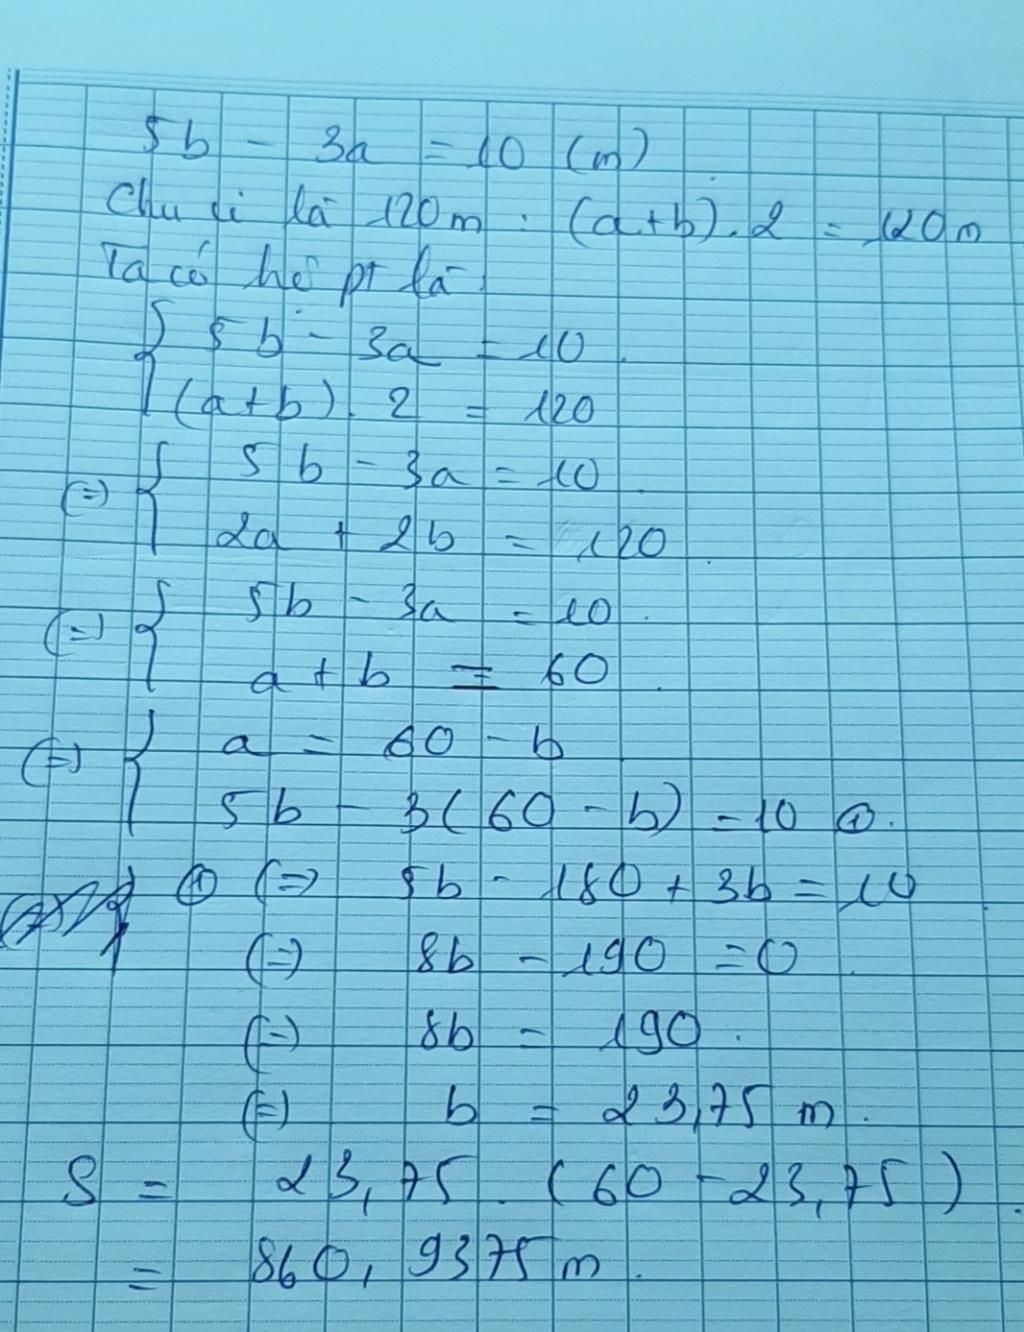 5b - 3a = 10 (m)
Chu vi là 120m : (a+b).2 = 120m
Ta có hệ pt là
{ 5b - 3a = 10
(a+b).2 = 120
(=) { 5b - 3a = 10
2a + 2b = 120
(=) { 5b - 3a = 10
a + b = 60
(=) { a = 60 - b
5b - 3(60 - b) = 10 ①.
① (=) 5b - 180 + 3b = 10
(=) 8b - 190 = 0
(=) 8b = 190
(=) b = 23,75 m.
S = 23,75.(60 - 23,75)
= 860,9375m